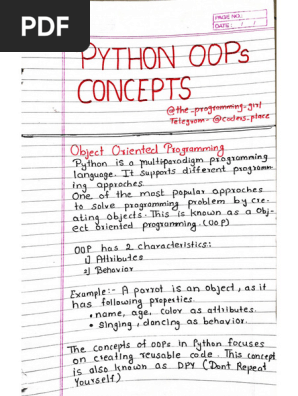 PDF
PAGE NO.
DATE: / /
PYTHON OOPs
CONCEPTS
@the_programming_girl
Telegram- @coders_place
Object Oriented Programming
Python is a multiparadigm programming
language. It supports different programm-
ing approches.
One of the most popular approches
to solve programming problem by cre-
ating objects. This is known as a Obj-
ect oriented programming. (OOP)
OOP has 2 characteristics:
1) Attributes
2) Behavior
Example:- A parrot is an object, as it
has following properties.
• name, age, color as attributes.
• singing, dancing as behavior.
The concepts of OOPs in Python focuses
on creating reusable code. This concept
is also known as DPY (Dont Repeat
Yourself)